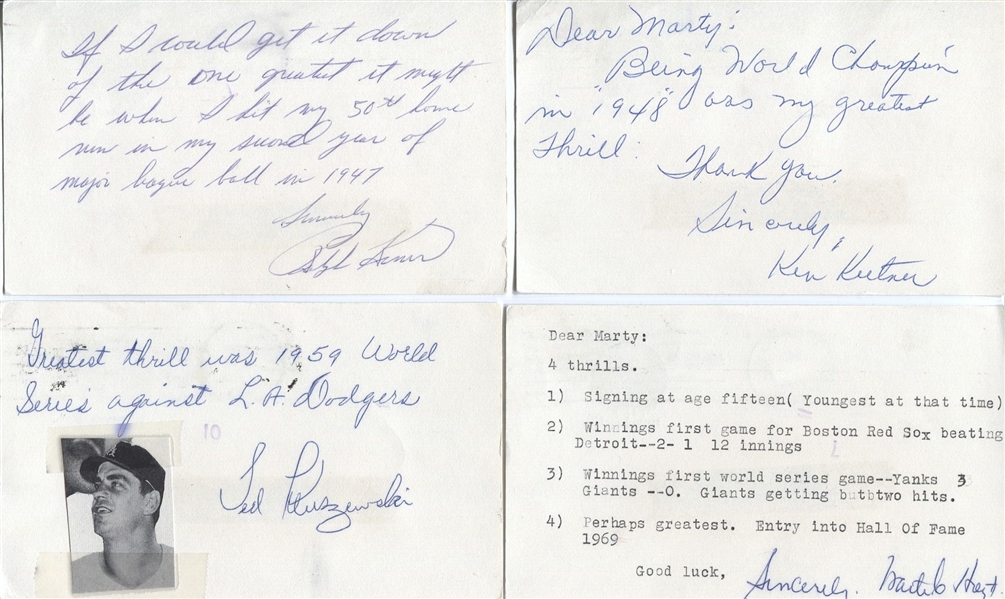 If I could get it down
of the one greatest it might
be when I hit my 50th home
run in my second year of
major league ball in 1947
Sincerely
Ralph Kiner
Dear Marty:
Being World Champion
in "1948" was my greatest
thrill.
Thank you.
Sincerely,
Ken Keltner
Greatest thrill was 1959 World
Series against L.A. Dodgers
10
Ted Kluszewski
Dear Marty:
4 thrills.
1) Signing at age fifteen( Youngest at that time)
2) Winnings first game for Boston Red Sox beating
Detroit--2- 1 12 innings
3) Winnings first world series game--Yanks 3
Giants --0. Giants getting butbtwo hits.
4) Perhaps greatest. Entry into Hall Of Fame
1969
Good luck, Sincerely, Waite C Hoyt